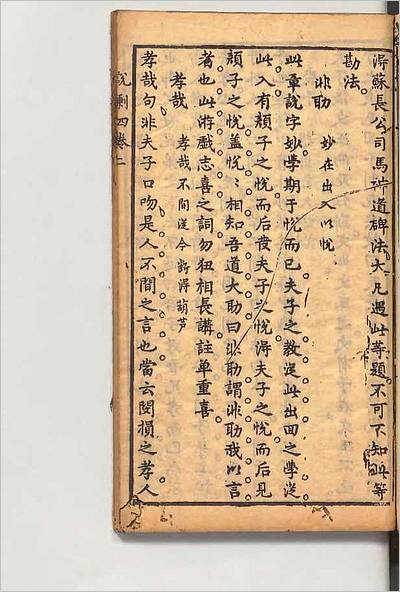 得蘇長公司馬神道碑法大凡遇此等題不可下知此等
勘法
非助　妙在出入以悅
此章說字妙學期于悅而已夫子之教從此出回之學從
此入有顏子之悅而后發夫子之悅得夫子之悅而后見
顏子之悅蓋悅〻相知吾道大助曰非助謂非助我以言
者也此游戲志喜之詞勿狃相長講註单重喜
孝哉　孝哉不間從今斷得葫芦
孝哉句非夫子口吻是人不間之言也當云閔損之孝人
說剩四卷二